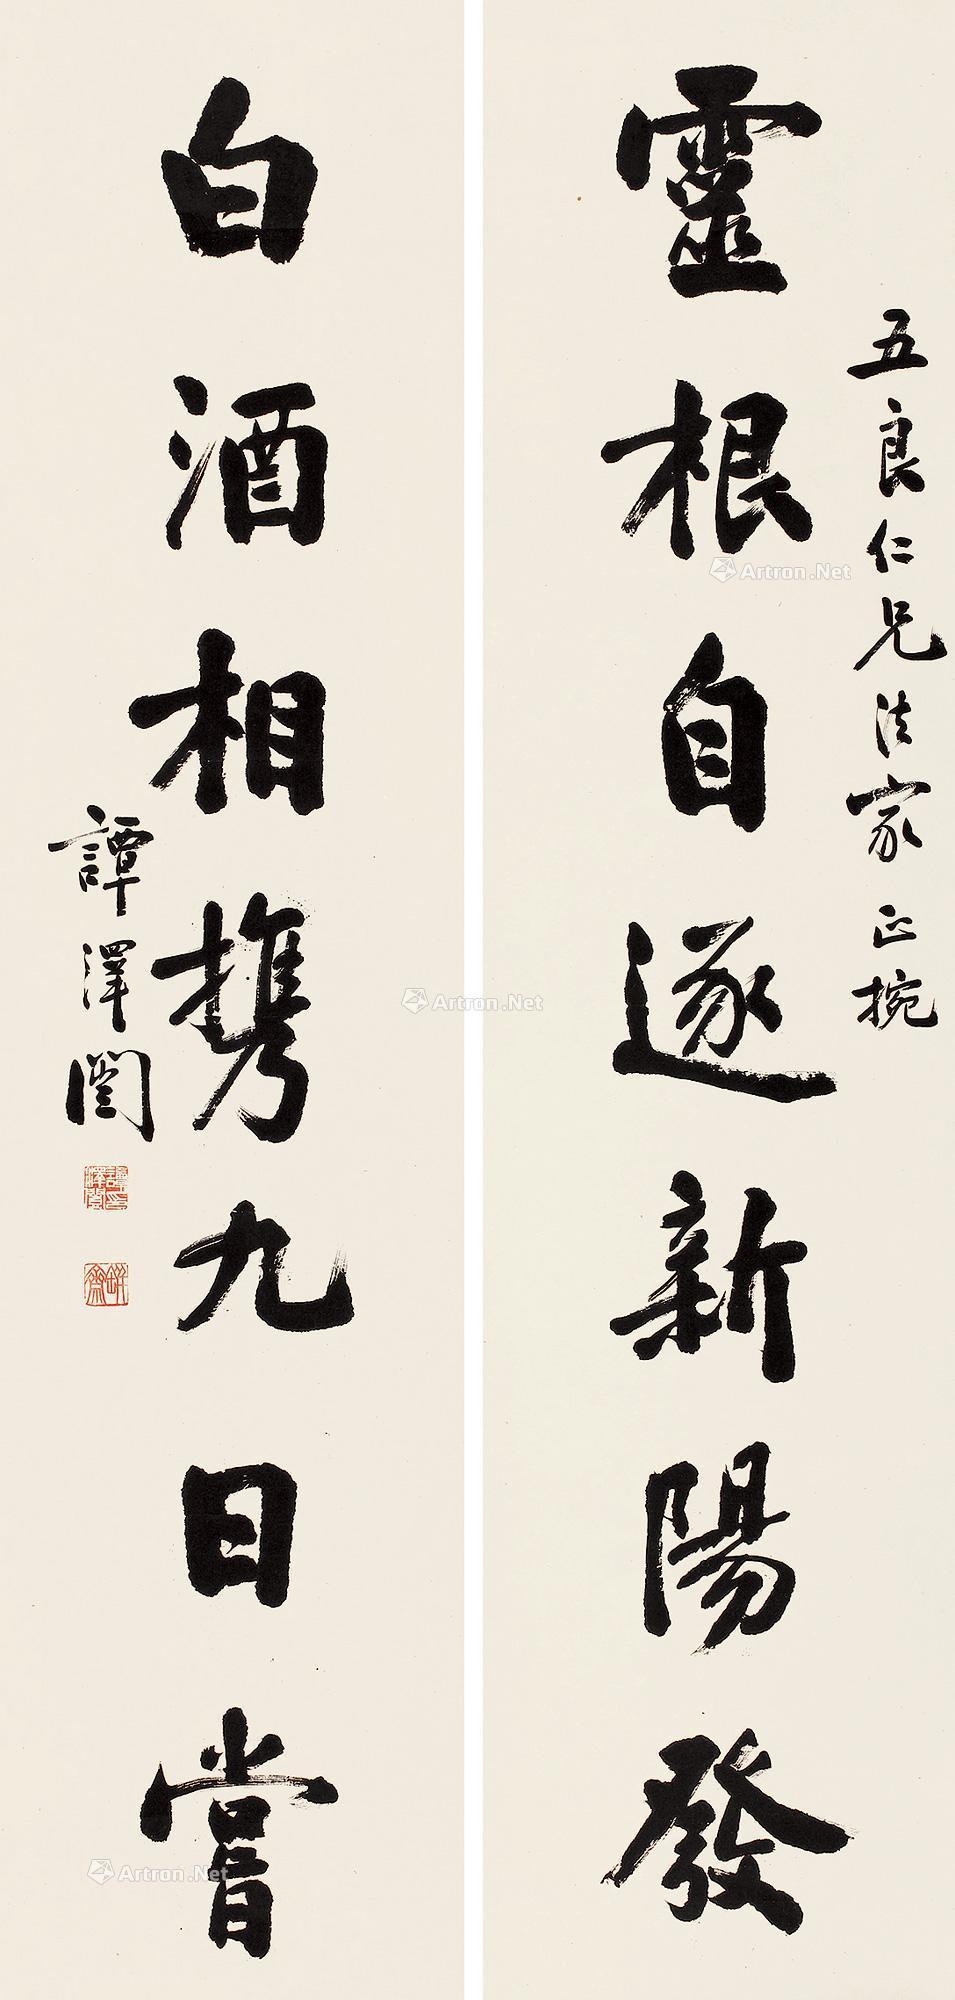 五良仁兄法家正捥
靈根自逐新陽發
白酒相攜九日嘗
譚澤闓
譚澤闓印
缾齋
Artron.Net
Artron.Net
Artron.Net